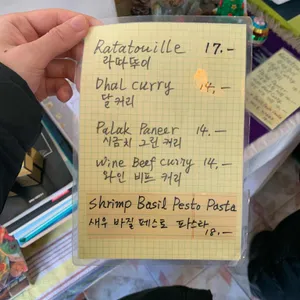 Ratatouille 17.-
라따뚜이
Dhal curry 14.-
달 커리
Palak Paneer 14.-
시금치 그린 커리
Wine Beef curry 14.-
와인 비프 커리
Shrimp Basil Pesto Pasta
새우 바질 페스토 파스타
18.-